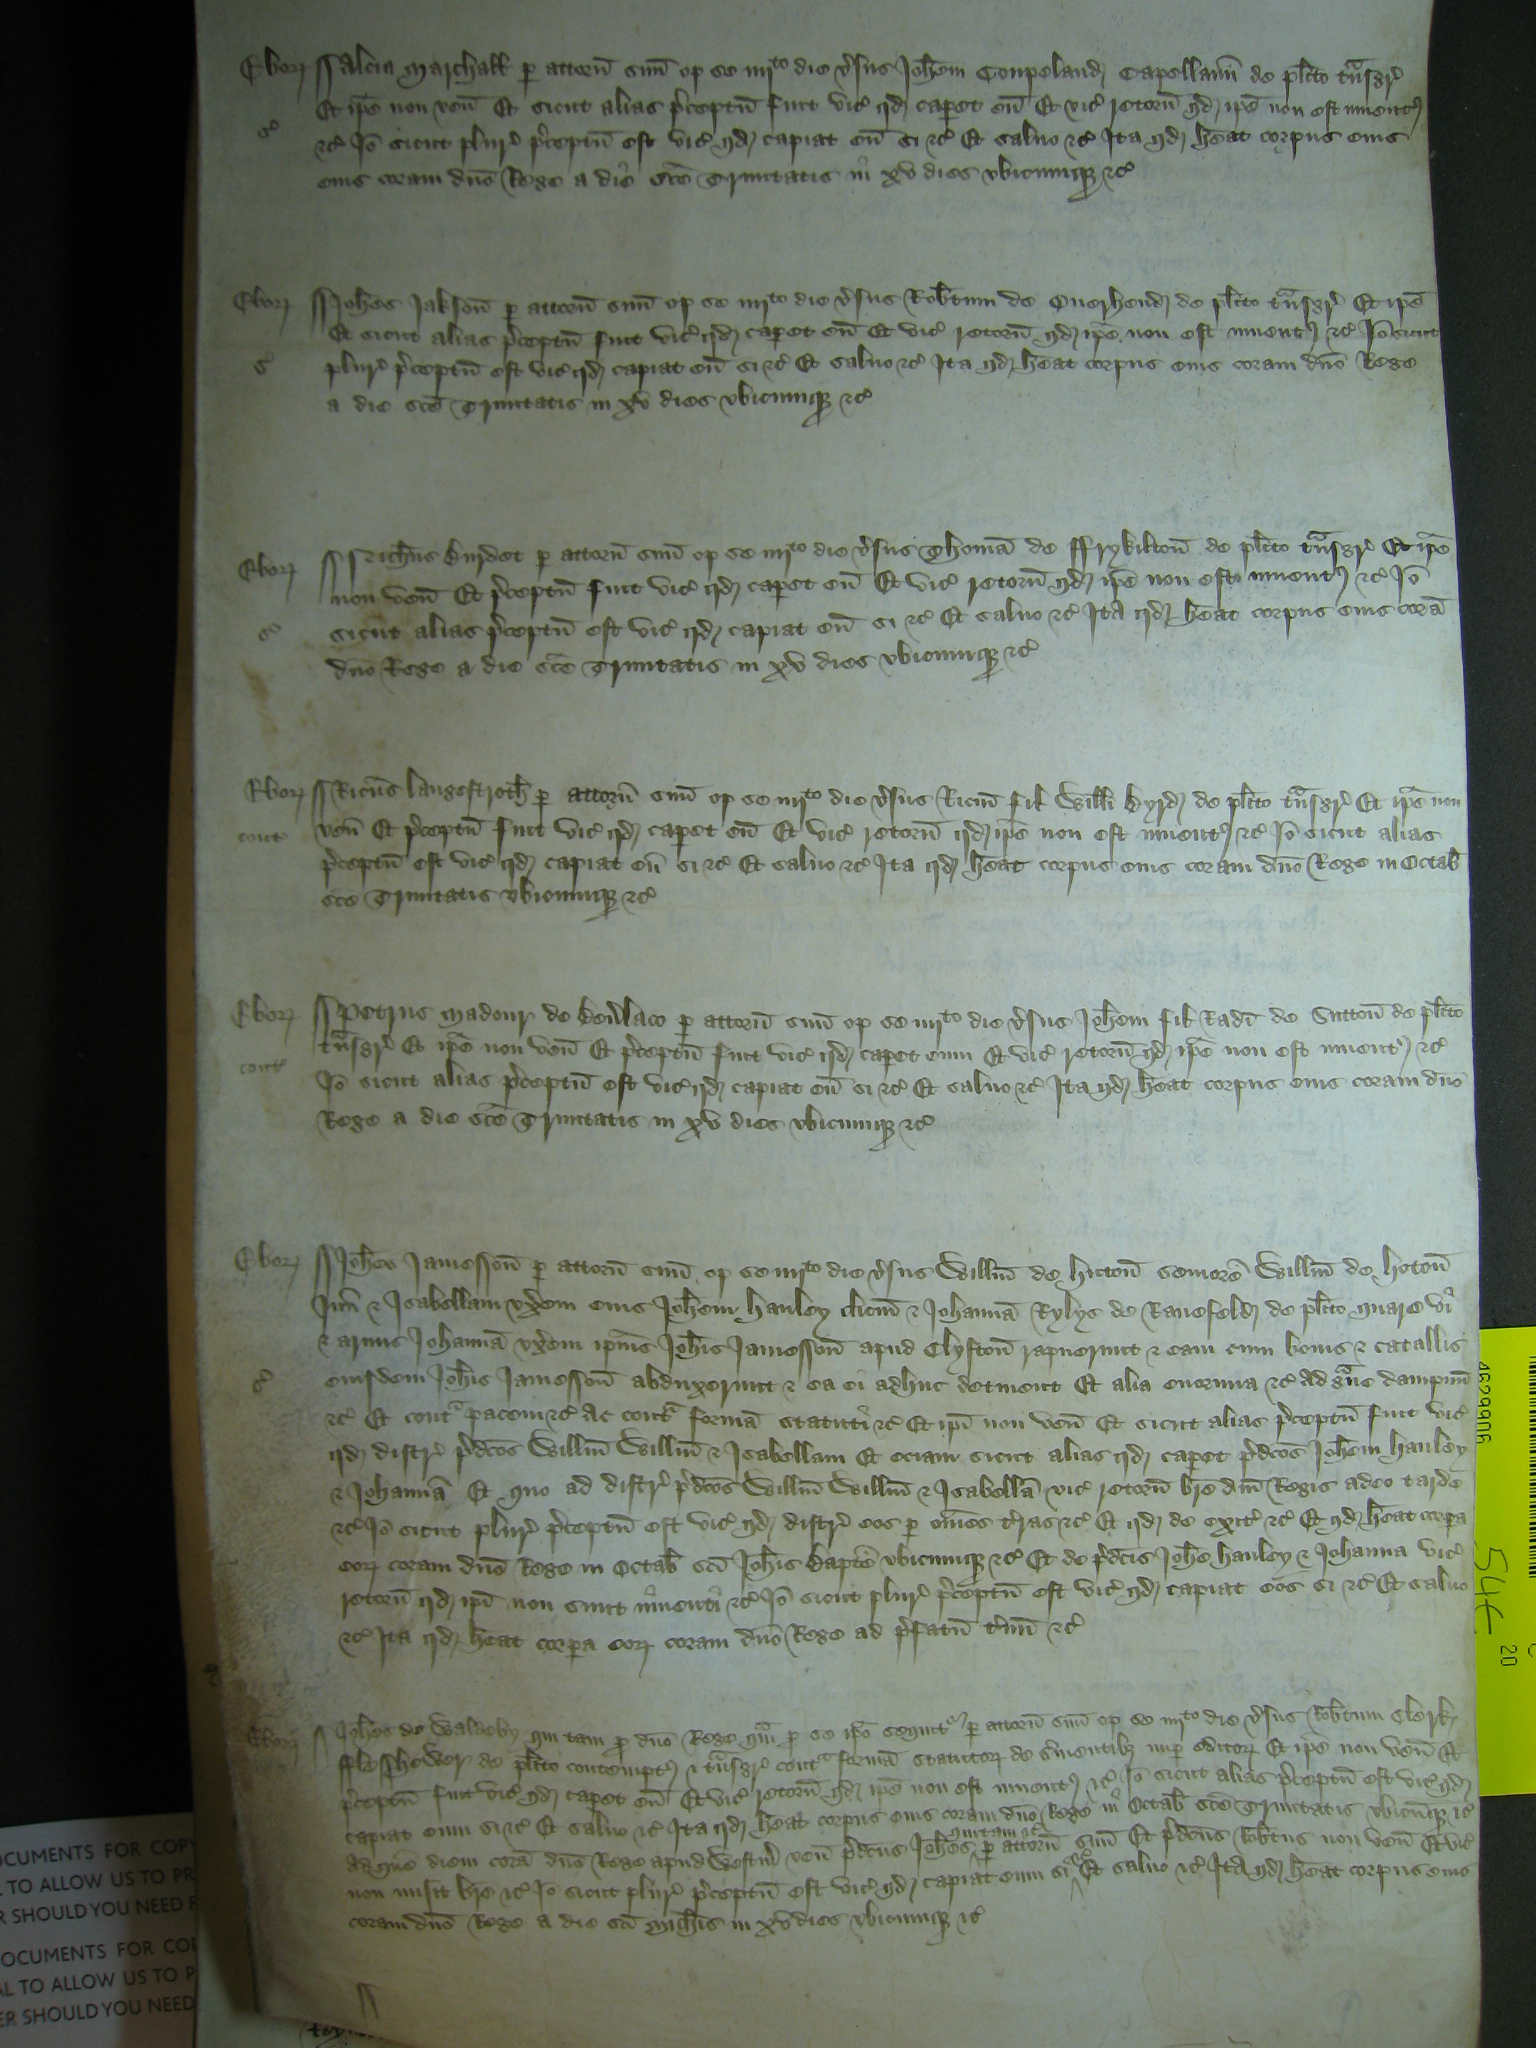 Ebor Alicia Marchall p attorn suu op se iiijto die vsus Johem Coupeland Capellanu de plito tnsgr
Et ipe non ven Et sicut alias pceptu fuit vic qd caperet eu Et vic retorn qd ipe non est inuent
&c Jo sicut plur pceptu est vic qd capiat eu si &c Et saluo &c Ita qd heat corpus eius
eius coram dno Rege a die sce Trinitatis in xv dies vbicumq &c
Ebor Johes Jakson p attorn suu op se iiijto die vsus Robtum de Ouerhend de plito tnsgr Et ipe
Et sicut alias pceptu fuit vic qd caperet eu Et vic retorn qd ipe non est inuent &c Jo sicut
plur pceptu est vic qd capiat eu si &c Et saluo &c Ita qd heat corpus eius coram dno Rege
a die sce Trinitatis in xv dies vbicumq &c
Ebor Burdet p attorn suu op se iiijto die vsus Thoma de ffrykilton de plito tnsgr Et ipe
non ven Et pceptu fuit vic qd caperet eu Et vic retorn qd ipe non est inuent &c Jo
sicut alias pceptu est vic qd capiat eu si &c Et saluo &c Ita qd heat corpus eius cora
dno Rege a die sce Trinitatis in xv dies vbicumq &c
Ebor Ricus Langestroth p attorn suu op se iiijto die vsus Ricm fil Willi Byrd de plito tnsgr Et ipe non
cont ven Et pceptu fuit vic qd caperet eu Et vic retorn qd ipe non est inuent &c Jo sicut alias
pceptu est vic qd capiat eu si &c Et saluo &c Ita qd heat corpus eius coram dno Rege in Octab
sce Trinitatis vbicumq &c
Ebor Petrus Madour de Beulaco p attorn suu op se iiijto die vsus Johem fil Radi de Sutton de plito
cont tnsgr Et ipe non ven Et pceptu fuit vic qd caperet eum Et vic retorn qd ipe non est inuent &c
Jo sicut alias pceptu est vic qd capiat eu si &c Et saluo &c Ita qd heat corpus eius coram dno
Rege a die sce Trinitatis in xv dies vbicumq &c
Ebor Johes Jamesson p attorn suu op se iiijto die vsus Willm de hicton seniore Willm de hoton
Jun & Isabellam vxem eius Johem hauley clicum & Johanna Rylys de Rauefeld de plito quare vi
& armis Johanna vxem ipius Johis Jamesson apud Clyfton rapuerunt & eam cum bonis & catallis
eiusdem Johis Jamesson abduxerunt & ea ei adhuc detinent Et alia enormia &c ad gue dampnu
&c Et cont pacem &c ac cont forma statuti &c Et ipi non ven Et sicut alias pceptu fuit vic
qd distr pdcos Willm Willm & Isabellam Et eciam sicut alias qd caperet pdcos Johem hauley
& Johanna Et quo ad distr pdcos Willm Willm & Isabella vic retorn bre dni Regis adeo tarde
&c Jo sicut plur pceptu est vic qd distr eos p omes tras &c Et qd de exit &c Et qd heat corpa
eor coram dno Rege in Octab sci Johis Bapte vbicumq &c Et de pdcis Johe hauley & Johanna vic
retorn qd ipi non sunt inuenti &c Jo sicut plur pceptu est vic qd capiat eos si &c Et saluo
&c Ita qd heat corpa eor coram dno Rege ad pfatu tminu &c
Ebor Johes de Waldeby qui tam p dno Rege qm p se ipo sequit p attorn suu op se iiijto die vsus Robtum Clerk
fflesshewer de plito contempt & tnsgr cont forma statutor de suientib nup editor Et ipe non ven Et
pceptu fuit vic qd caperet eu Et vic retorn qd ipe non est inuent &c Jo sicut alias pceptu est vic qd
capiat eum si &c Et saluo &c Ita qd heat corpus eius coram dno Rege in Octab sce Trinitatis vbicumq &c
Ad quem diem cora dno Rege apud Westm ven pdcus Johes qui tam &c p attorn suu Et pdcus Robtus non ven Et vic
non misit bre &c Jo sicut plur pceptu est vic qd capiat eum si &c Et saluo &c Ita qd heat corpus eius
coram dno Rege a die sci Michis in xv dies vbicumq &c
4629906
20
OCUMENTS FOR COP
L TO ALLOW US TO PR
R SHOULD YOU NEED
OCUMENTS FOR COP
AL TO ALLOW US TO P
ER SHOULD YOU NEED